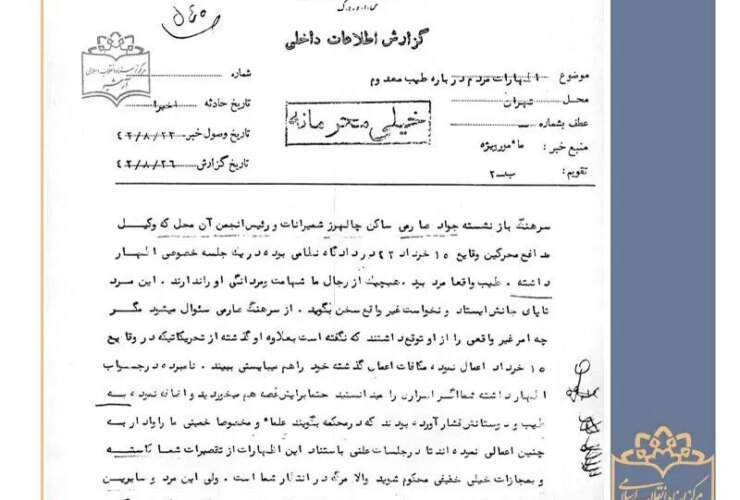 گزارش اطلاعات داخلی
موضوع اظهارات مردم درباره طیب معدوم
شماره
محل تهران
تاریخ حادثه اخیرا
عطف بشماره
خیلی محرمانه
تاریخ وصول خبر ۴۲/۸/۲۳
منبع خبر: مأمور ویژه
تاریخ گزارش ۴۲/۸/۲۶
تقویم: ب-۲
سرهنگ باز نشسته جواد عارمی ساکن چالهرز شمیرانات و رئیس انجمن آن محل که وکیل
مدافع محرکین وقایع ۱۵ خرداد ۴۲ در دادگاه نظامی بوده در یک جلسه خصوصی اظهار
داشته . طیب واقعا مرد بود . هیچیک از رجال ما شهامت ومردانگی او راندارند . این مرد
تا پای جانش ایستاد و نخواست غیر واقع سخن بگوید . از سرهنگ عارمی سئوال میشود مگر
چه امر غیر واقعی را از او توقع داشتند که نگفته است بعلاوه او گذشته از تحریکاتیکه در وقایع
۱۵ خرداد اعمال نموده مکافات اعمال گذشته خود را هم میبایستی ببیند . نامبرده در جواب
اظهار داشته شما اگر اسراری را میدانستید حتما برایش غصه هم میخوردید و اضافه نموده به
طیب و دوستانش فشار آورده بودند که در محکمه بگویند علماء و مخصوصا خمینی ما را وادار به
چنین اعمالی نموده اند تا در جلسات علنی باستناد این اظهارات از تقصیرات شما کاسته
و بمجازات خیلی خفیفی محکوم شوید والا مرگ در انتظار شما است . ولی این مرد و سایرین